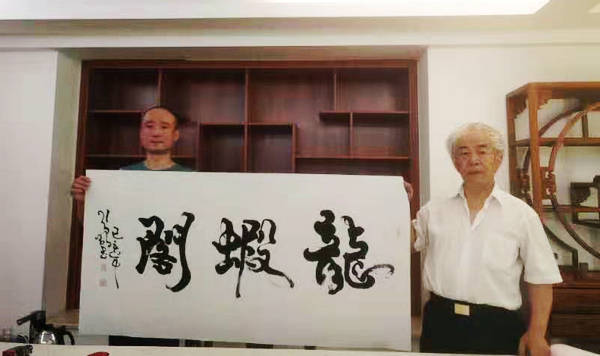 龍蝦閣
己亥年